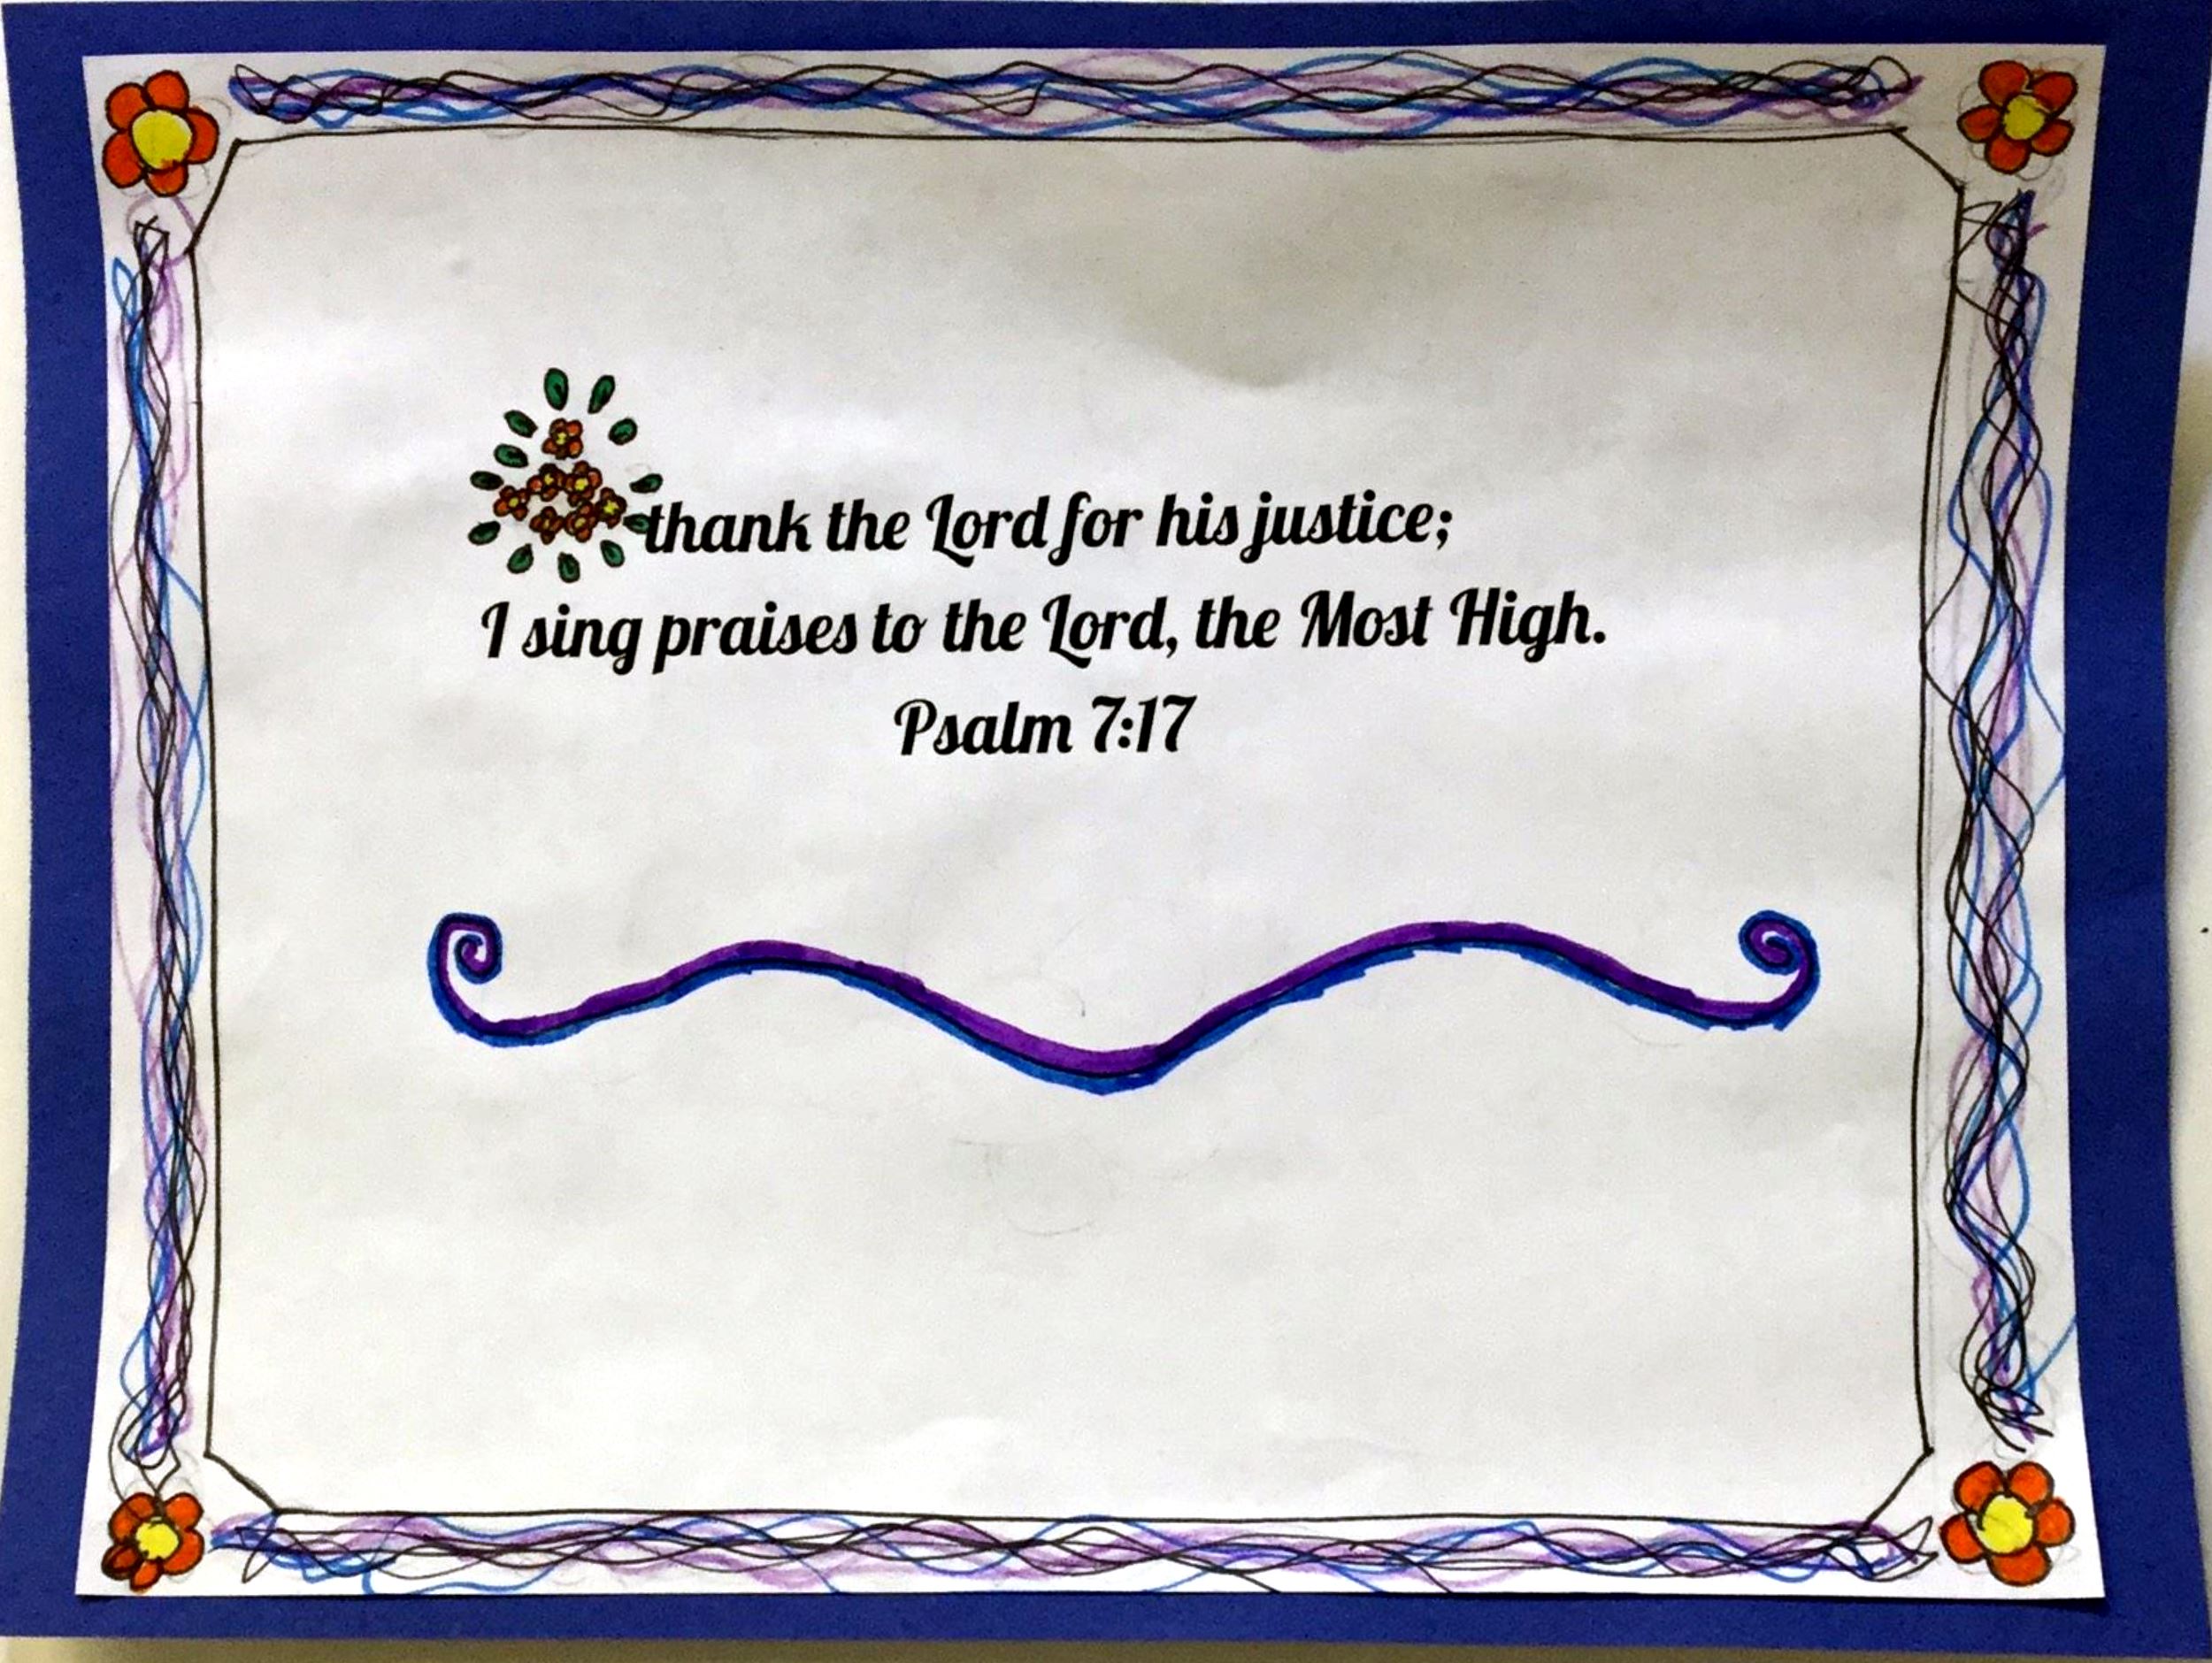 thank the Lord for his justice;
I sing praises to the Lord, the Most High.
Psalm 7:17